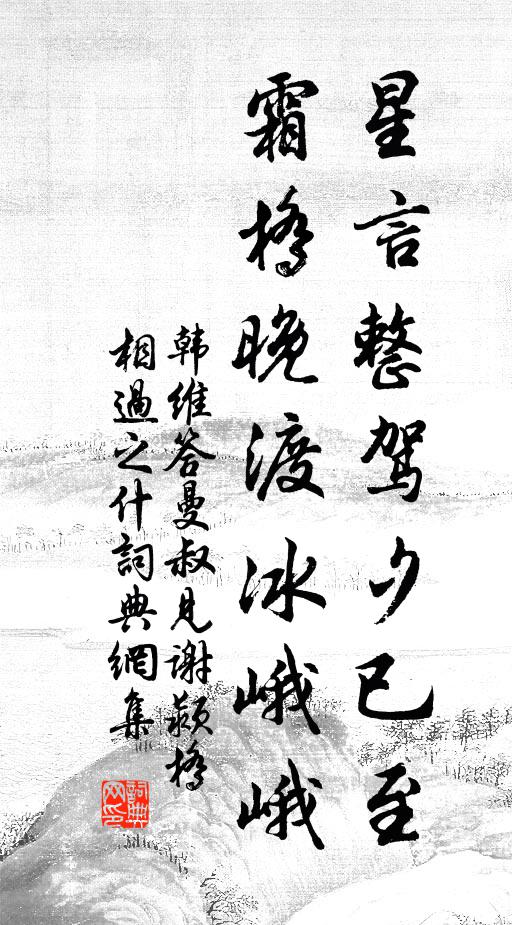 星言整驾夕已至
霜橋晚渡冰峨峨
韩維答曼叔見谢颍橋
相過之什詞典網集
詞典網印